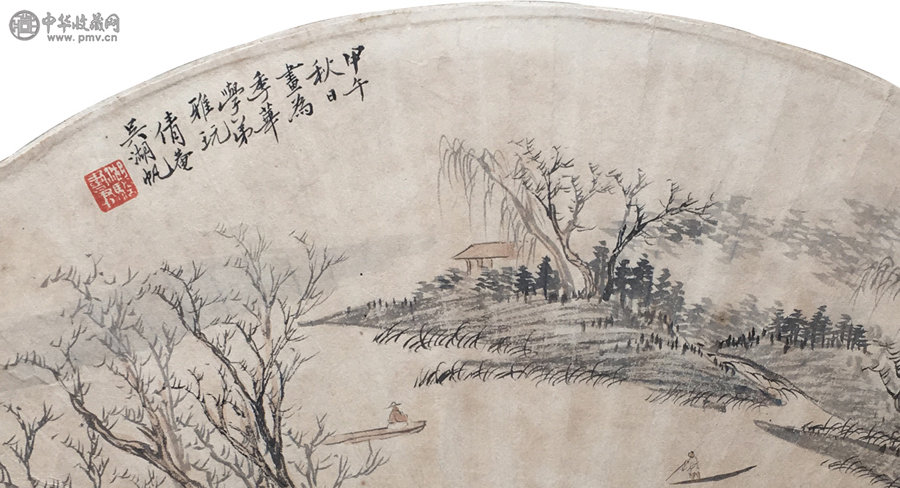 中华收藏网
www.pmv.cn
甲午
秋日
畫為
季華
學弟
雅玩
倩菴
吳湖帆